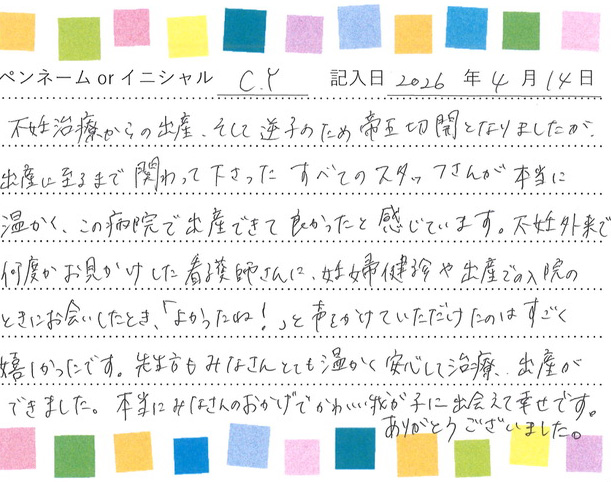 ペンネーム or イニシャル C.Y 記入日 2026 年 4 月 14 日
不妊治療からの出産、そして逆子のため帝王切開となりましたが、
出産に至るまで関わって下さった すべてのスタッフさんが本当に
温かく、この病院で出産できて良かったと感じています。不妊外来で
何度かお見かけした看護師さんに、妊婦健診や出産での入院の
ときにお会いしたとき、「よかったね！」と声をかけていただけたのはすごく
嬉しかったです。先生方もみなさんとても温かく安心して治療、出産が
できました。本当にみなさんのおかげでかわいい我が子に出会えて幸せです。
ありがとうございました。